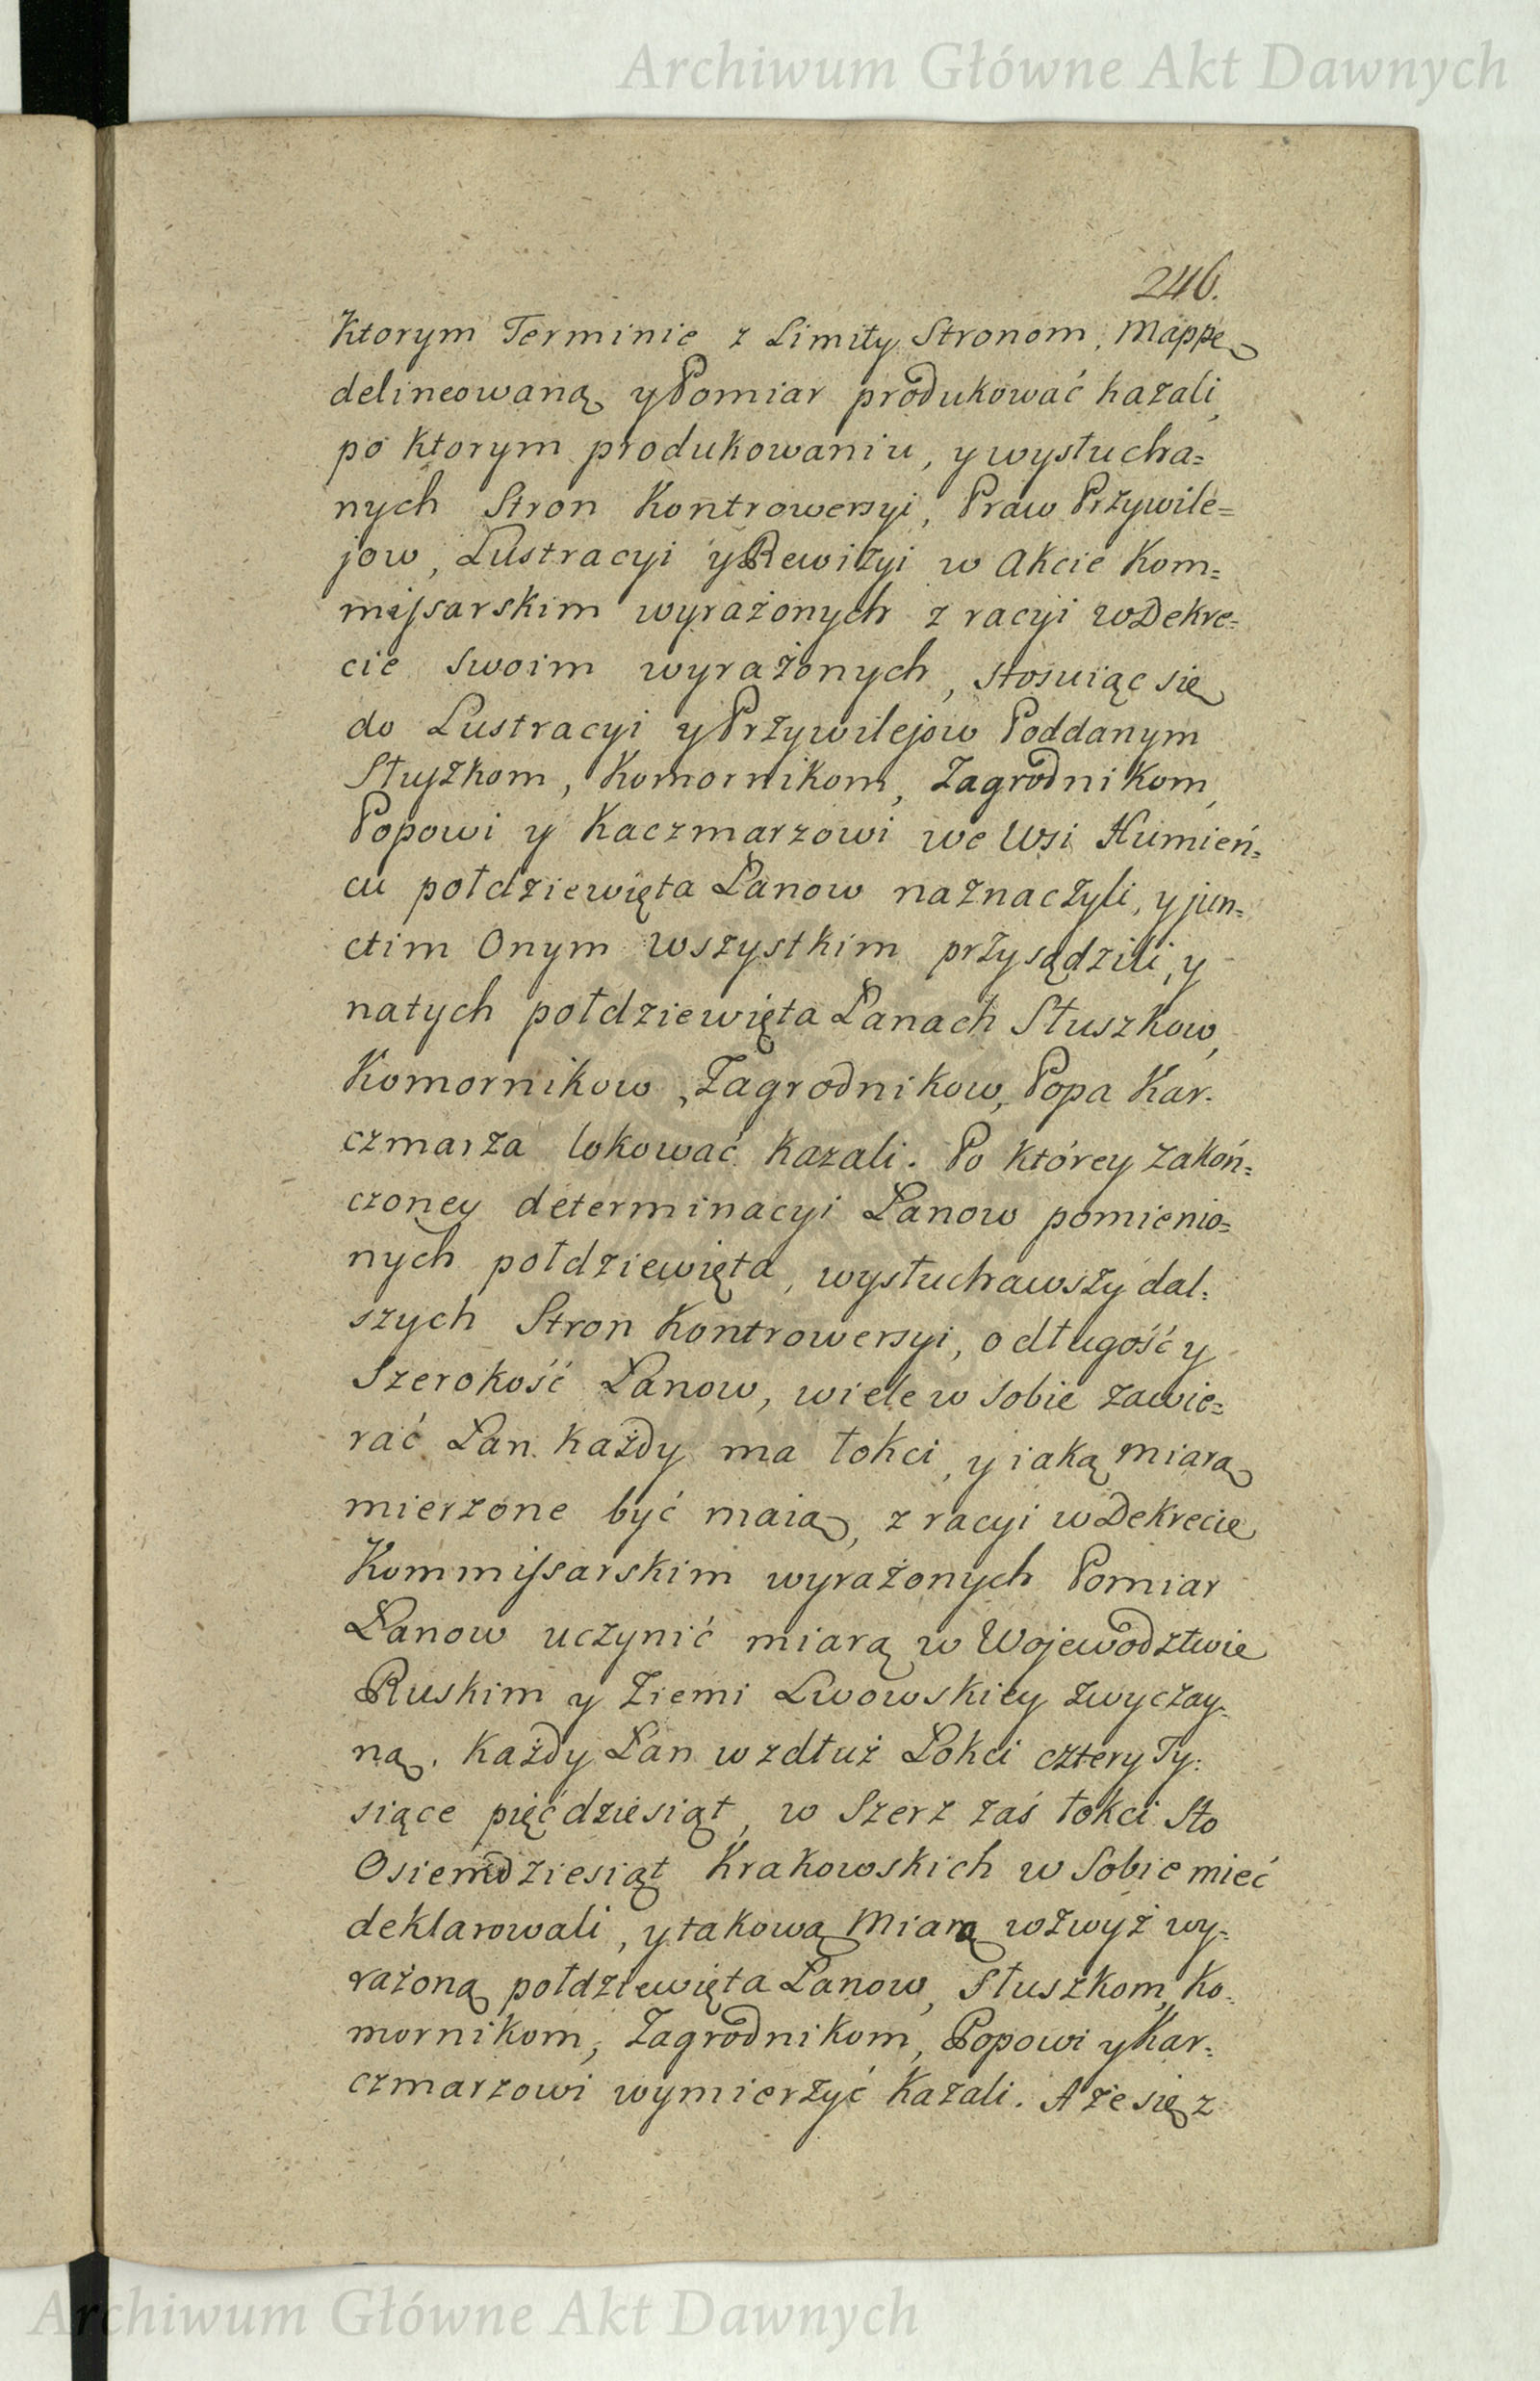 Archiwum Główne Akt Dawnych
246.
Ktorym Terminie z Limity Stronom, Mappę
delineowaną y Pomiar produkować kazali,
po ktorym produkowaniu, y wysłucha=
nych Stron Kontrowersyi, Praw Przywile=
jow, Lustracyi y Rewizyi w Akcie Kom=
missarskim wyrażonych z racyi w Dekre=
cie swoim wyrażonych, stosuiąc się
do Lustracyi y Przywilejow Poddanym
Słuszkom, Komornikom, Zagrodnikom,
Popowi y Kaczmarzowi we Wsi Humień=
cu połdziewięta Łanow naznaczyli, y jun=
ctim Onym wszystkim przysądzili, y
natych połdziewięta Łanach Słuszkow,
Komornikow, Zagrodnikow, Popa Kar=
czmarza lokować kazali. Po którey zakoń=
czoney determinacyi Łanow pomienio=
nych połdziewięta, wysłuchawszy dal=
szych Stron Kontrowersyi, o długość y
Szerokość Łanow, wiele w sobie zawie=
rać Łan każdy ma łokci, y iaką miarą
mierzone być maią, z racyi w Dekrecie
Kommissarskim wyrażonych Pomiar
Łanow uczynić miarą w Wojewodztwie
Ruskim y Ziemi Lwowskiey zwyczay=
ną. Każdy Łan wzdłuż Łokci cztery Ty=
siące pięćdziesiąt, w Szerz zaś łokci Sto
Osiemdziesiąt Krakowskich w Sobie mieć
deklarowali, y takową Miarą wzwyż wy=
rażoną połdziewięta Łanow, Słuszkom, Ko=
mornikom, Zagrodnikom, Popowi y Kar=
czmarzowi wymierzyć kazali. A że się z
Archiwum Główne Akt Dawnych